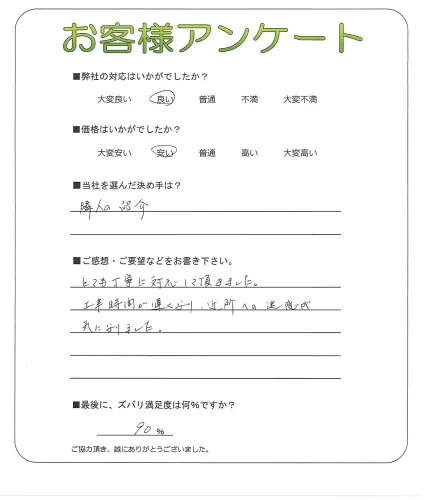 お客様アンケート
■弊社の対応はいかがでしたか？
大変良い 良い 普通 不満 大変不満
■価格はいかがでしたか？
大変安い 安い 普通 高い 大変高い
■当社を選んだ決め手は？
隣人の紹介
■ご感想・ご要望などをお書き下さい。
とても丁寧に対応して頂きました。
工事時間が遅くなり、近所への迷惑が
気になりました。
■最後に、ズバリ満足度は何％ですか？
90 %
ご協力頂き、誠にありがとうございました。